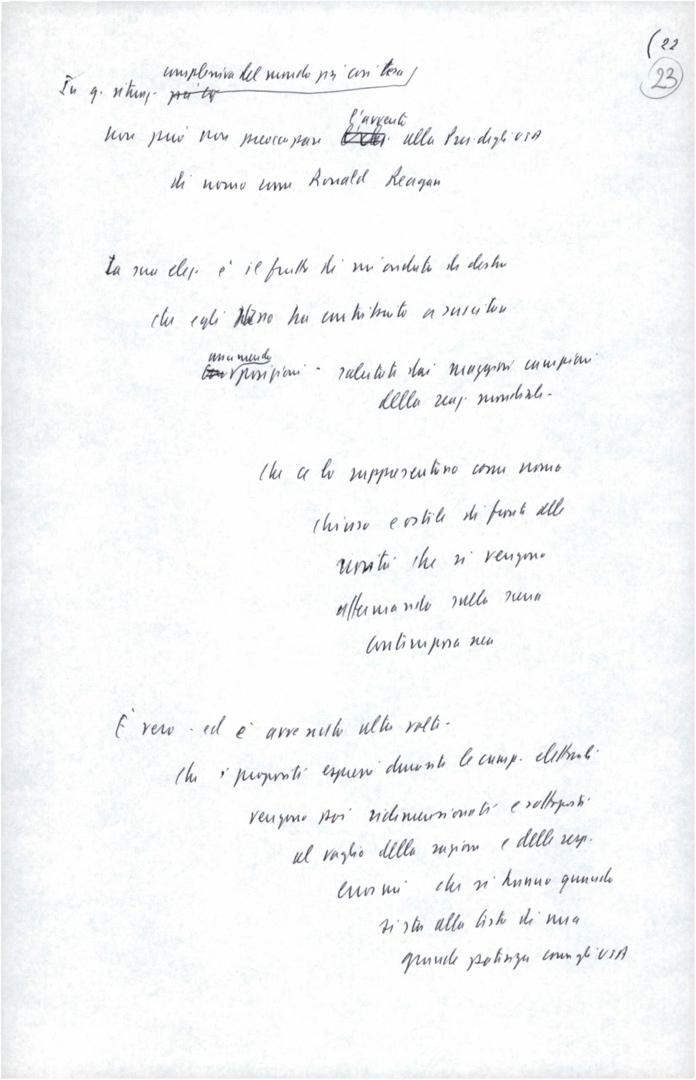 (22
23
complessiva del mondo già così tesa
In q. situaz.
l'avvento
non può non preoccupare alla Pres. degli USA
di uomo come Ronald Reagan
La sua elez. è il frutto di un'ondata di destra
che egli stesso ha contribuito a suscitare
assumendo
posizioni - salutate dai maggiori campioni
della reaz. mondiale -
che ce lo rappresentano come uomo
chiuso e ostile di fronte alle
novità che si vengono
affermando sulla scena
contemporanea
È vero - ed è avvenuto altre volte -
che i propositi espressi durante le camp. elettorali
vengono poi ridimensionati e sottoposti
al vaglio della ragione e delle resp.
enormi che si hanno quando
si sta alla testa di una
grande potenza come gli USA